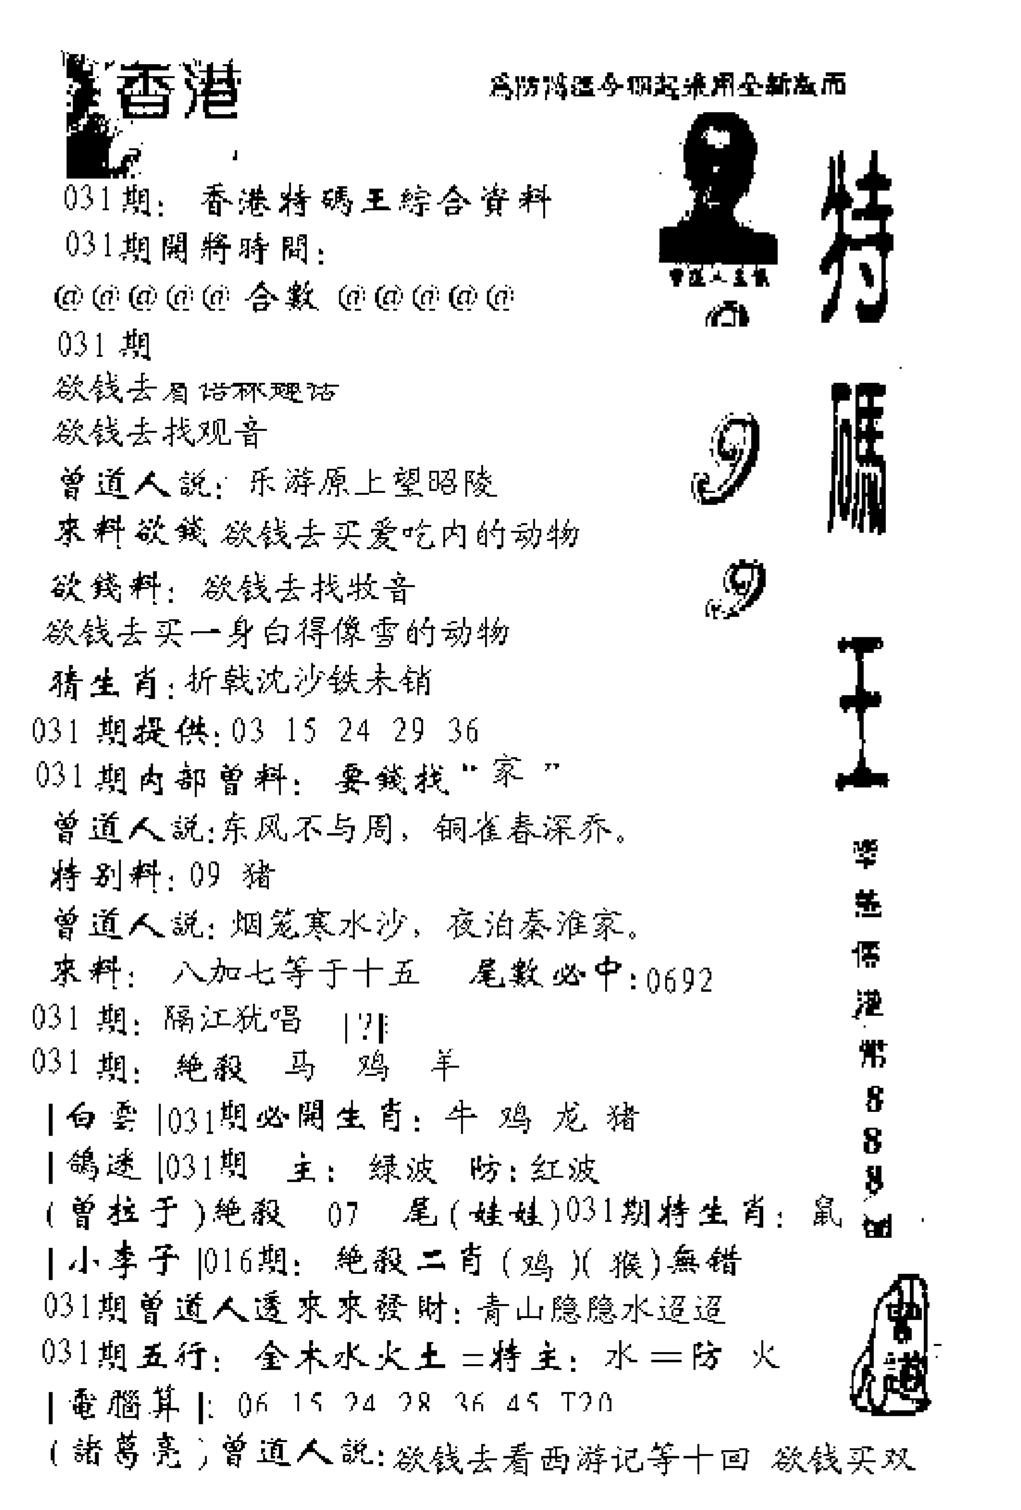 香港
031期: 香港特碼王綜合資料
031期開將時間:
@@@@@ 合數 @@@@@
031期
欲钱去
欲钱去找观音
曾道人説: 乐游原上望昭陵
來料欲錢 欲钱去买爱吃内的动物
欲錢料: 欲钱去找牧音
欲钱去买一身白得像雪的动物
猜生肖:折戟沈沙铁未销
031 期提供:03 15 24 29 36
031期内部曾料: 要錢找“家”
曾道人説:东风不与周，铜雀春深乔。
特别料: 09 猪
曾道人説: 烟笼寒水沙，夜泊秦淮家。
來料: 八加七等于十五 尾數必中:0692
031 期: 隔江犹唱 |?|
031 期: 絶殺 马 鸡 羊
|白雲|031期必開生肖: 牛 鸡 龙 猪
|鴿迷|031期 主: 绿波 防:红波
(曾拉于)絶殺 07 尾(娃娃)031期特生肖: 鼠
|小李子|016期: 絶殺二肖(鸡)(猴)無错
031期曾道人透來來發財:青山隐隐水迢迢
031期五行: 金木水火土=特主: 水=防 火
|電腦算|: 06 15 24 28 36 45 T20
(諸葛亮)曾道人説:欲钱去看西游记等十回 欲钱买双
特
碼
王
9
9
港
幣
8
8
8
曾道